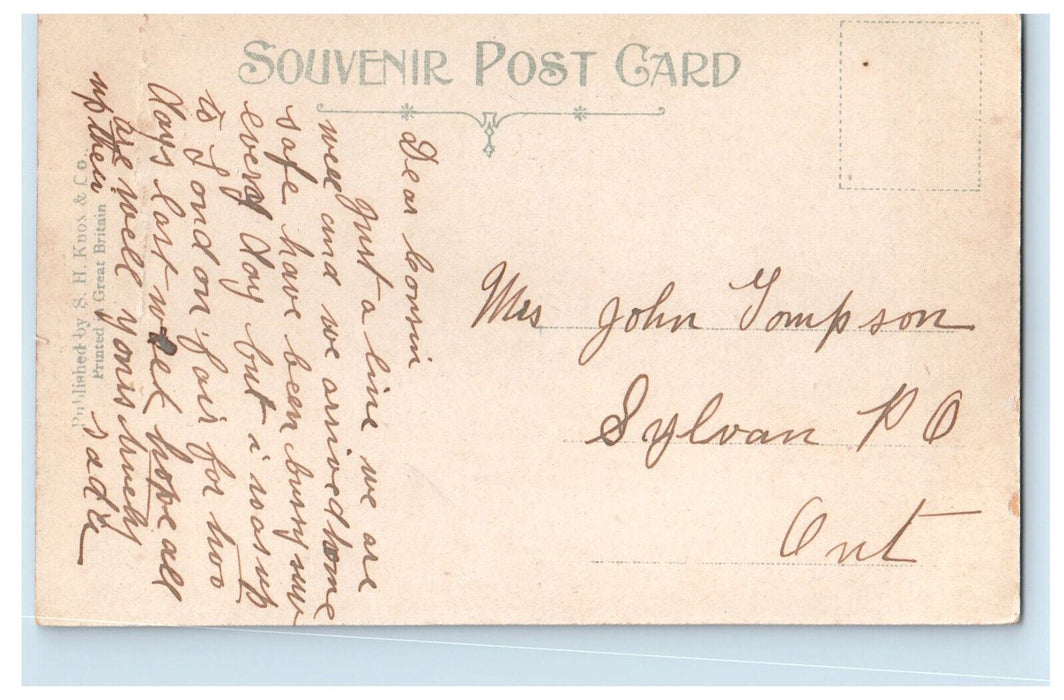 SOUVENIR POST CARD
Dear Cousin
Just a line we are
well and we arrived home
safe have been busy
every day but i was up
to London fair for two
days last week hope all
are well yours truely
up ther
sade
Mrs John Tompson
Sylvan P O
Ont
Published by S. H. Knox & Co.
Printed Great Britain